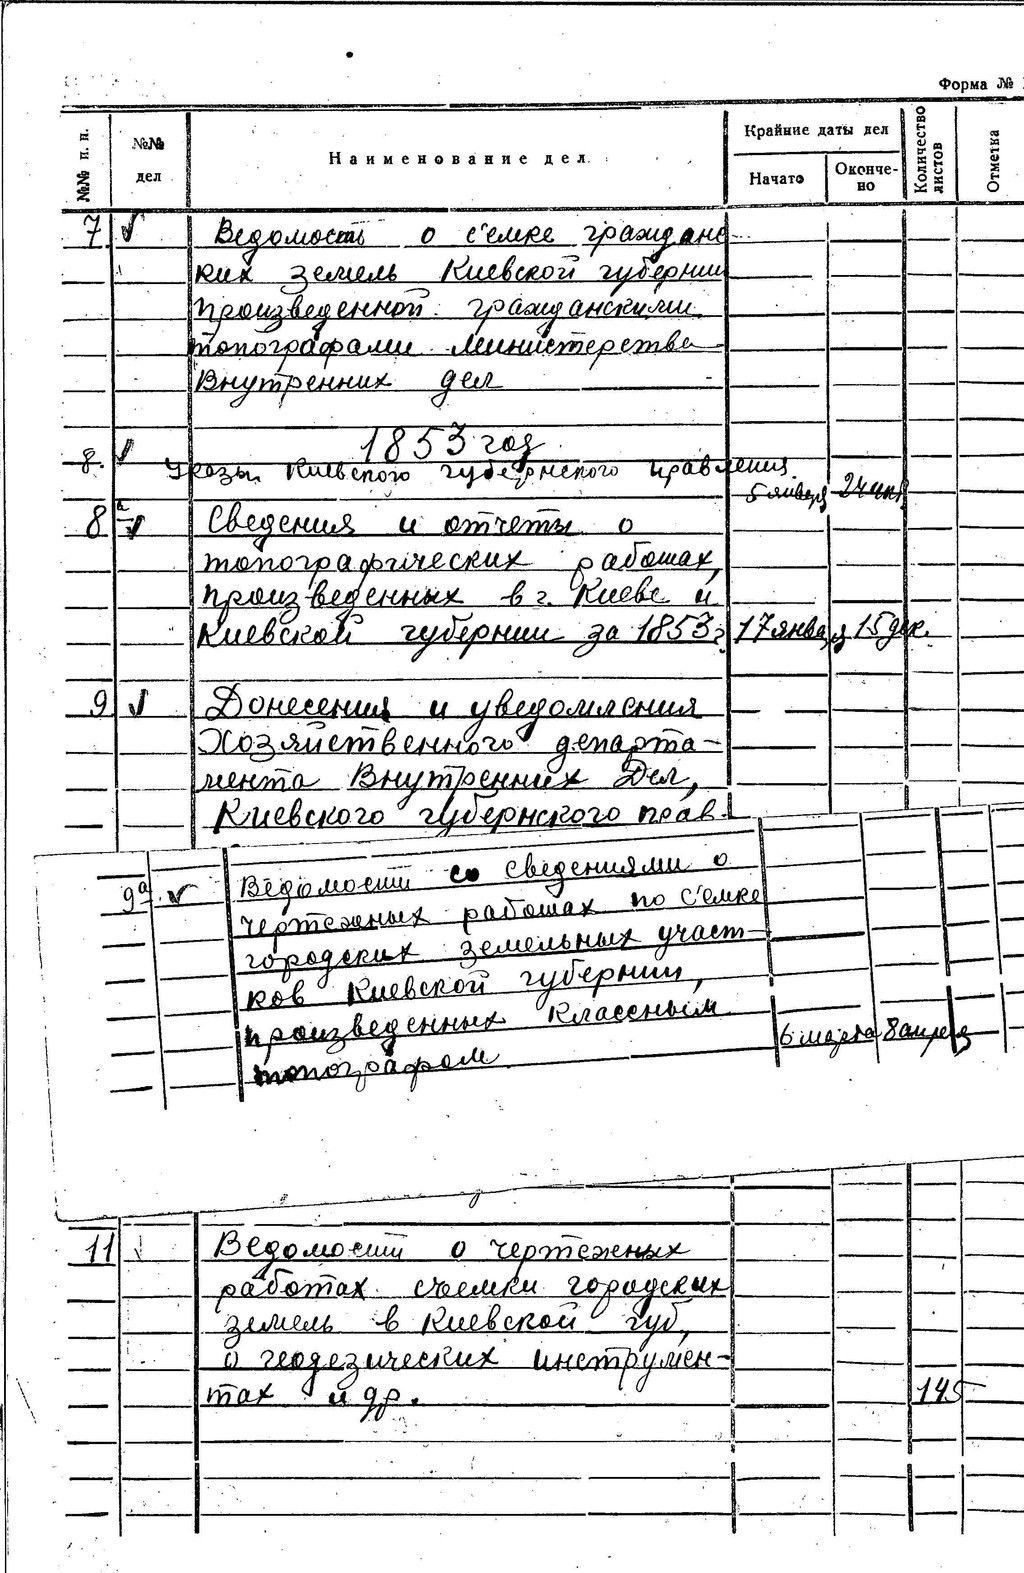 Форма №
№№ п. п.
№№ дел
Наименование дел
Крайние даты дел
Начато
Окончено
Количество листов
Отметка
7 Ведомость о с'емке гражданс
ких земель Киевской губернии
произведенной гражданскими
топографами Министерства
Внутренних дел
1853 год
8. Указы Киевского губернского правления
5 января 24
8а Сведения и отчеты о
топографических работах,
произведенных в г. Киеве и
Киевской губернии за 1853 г. 17 января 15 дек.
9 Донесения и уведомления
Хозяйственного департа-
мента Внутренних Дел,
Киевского губернского прав-
9а Ведомости со сведениями о
чертежных работах по с'емке
городских земельных участ-
ков Киевской губернии,
произведенных классным
топографом 6 марта 8 апреля
11 Ведомости о чертежных
работах съемки городских
земель в Киевской губ,
о геодезических инструмен-
тах и др. 145